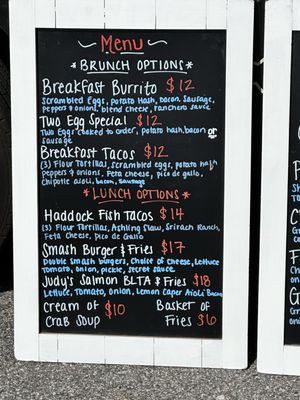 Menu
*BRUNCH OPTIONS*
Breakfast Burrito $12
Scrambled Eggs, potato Hash, bacon, Sausage,
peppers & onions, blend cheese, ranchero sauce
Two Egg Special $12
Two Eggs cooked to order, potato hash, bacon or
sausage
Breakfast Tacos $12
(3) Flour Tortillas, Scrambled eggs, potato hash
peppers & onions, Feta cheese, pico de gallo,
Chipotle aioli, bacon, sausage
*LUNCH OPTIONS*
Haddock Fish Tacos $14
(3) Flour Tortillas, Ashling Slaw, Sriracha Ranch,
Feta Cheese, Pico de Gallo
Smash Burger & Fries $17
Double smash burgers, Choice of cheese, Lettuce
Tomato, onion, pickle, secret sauce
Judy's Salmon BLTA & Fries $18
Lettuce, Tomato, Onion, Lemon Caper Aioli Bacon
cream of $10 Basket of
Crab Soup Fries $6